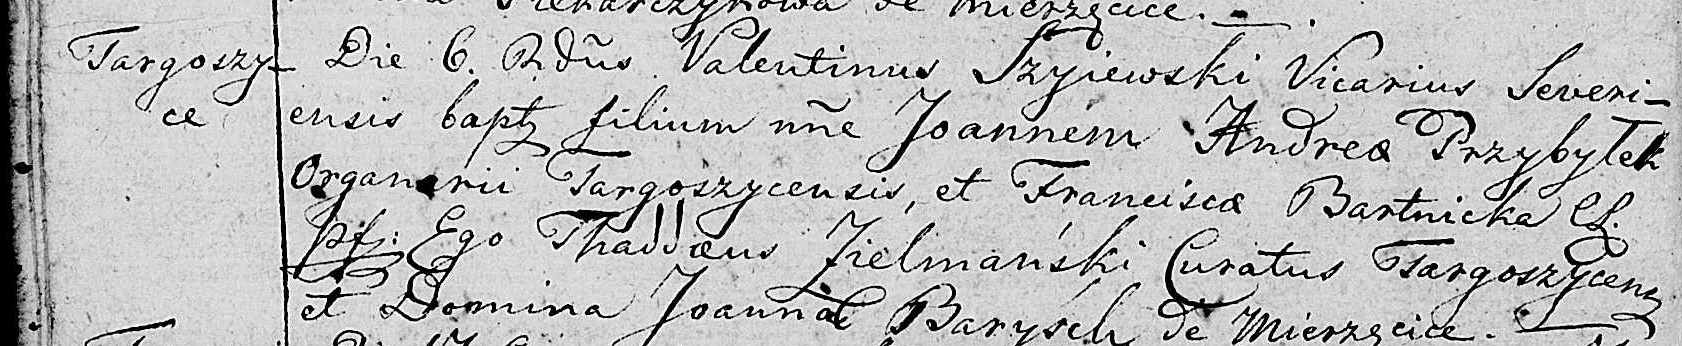 de Mierzęcice.
Targoszy- Die 6. Rdũs Valentinus Szyiewski Vicarius Severi-
ce ensis bapt filium nñe Joannem Andreæ Przybyłek
Organarii Targoszycensis, et Franciscæ Bartnicka CL.
Pf: Ego Thaddæus Zielmański Curatus Targoszycens
et Domina Joanna Barysch de Mierzęcice.